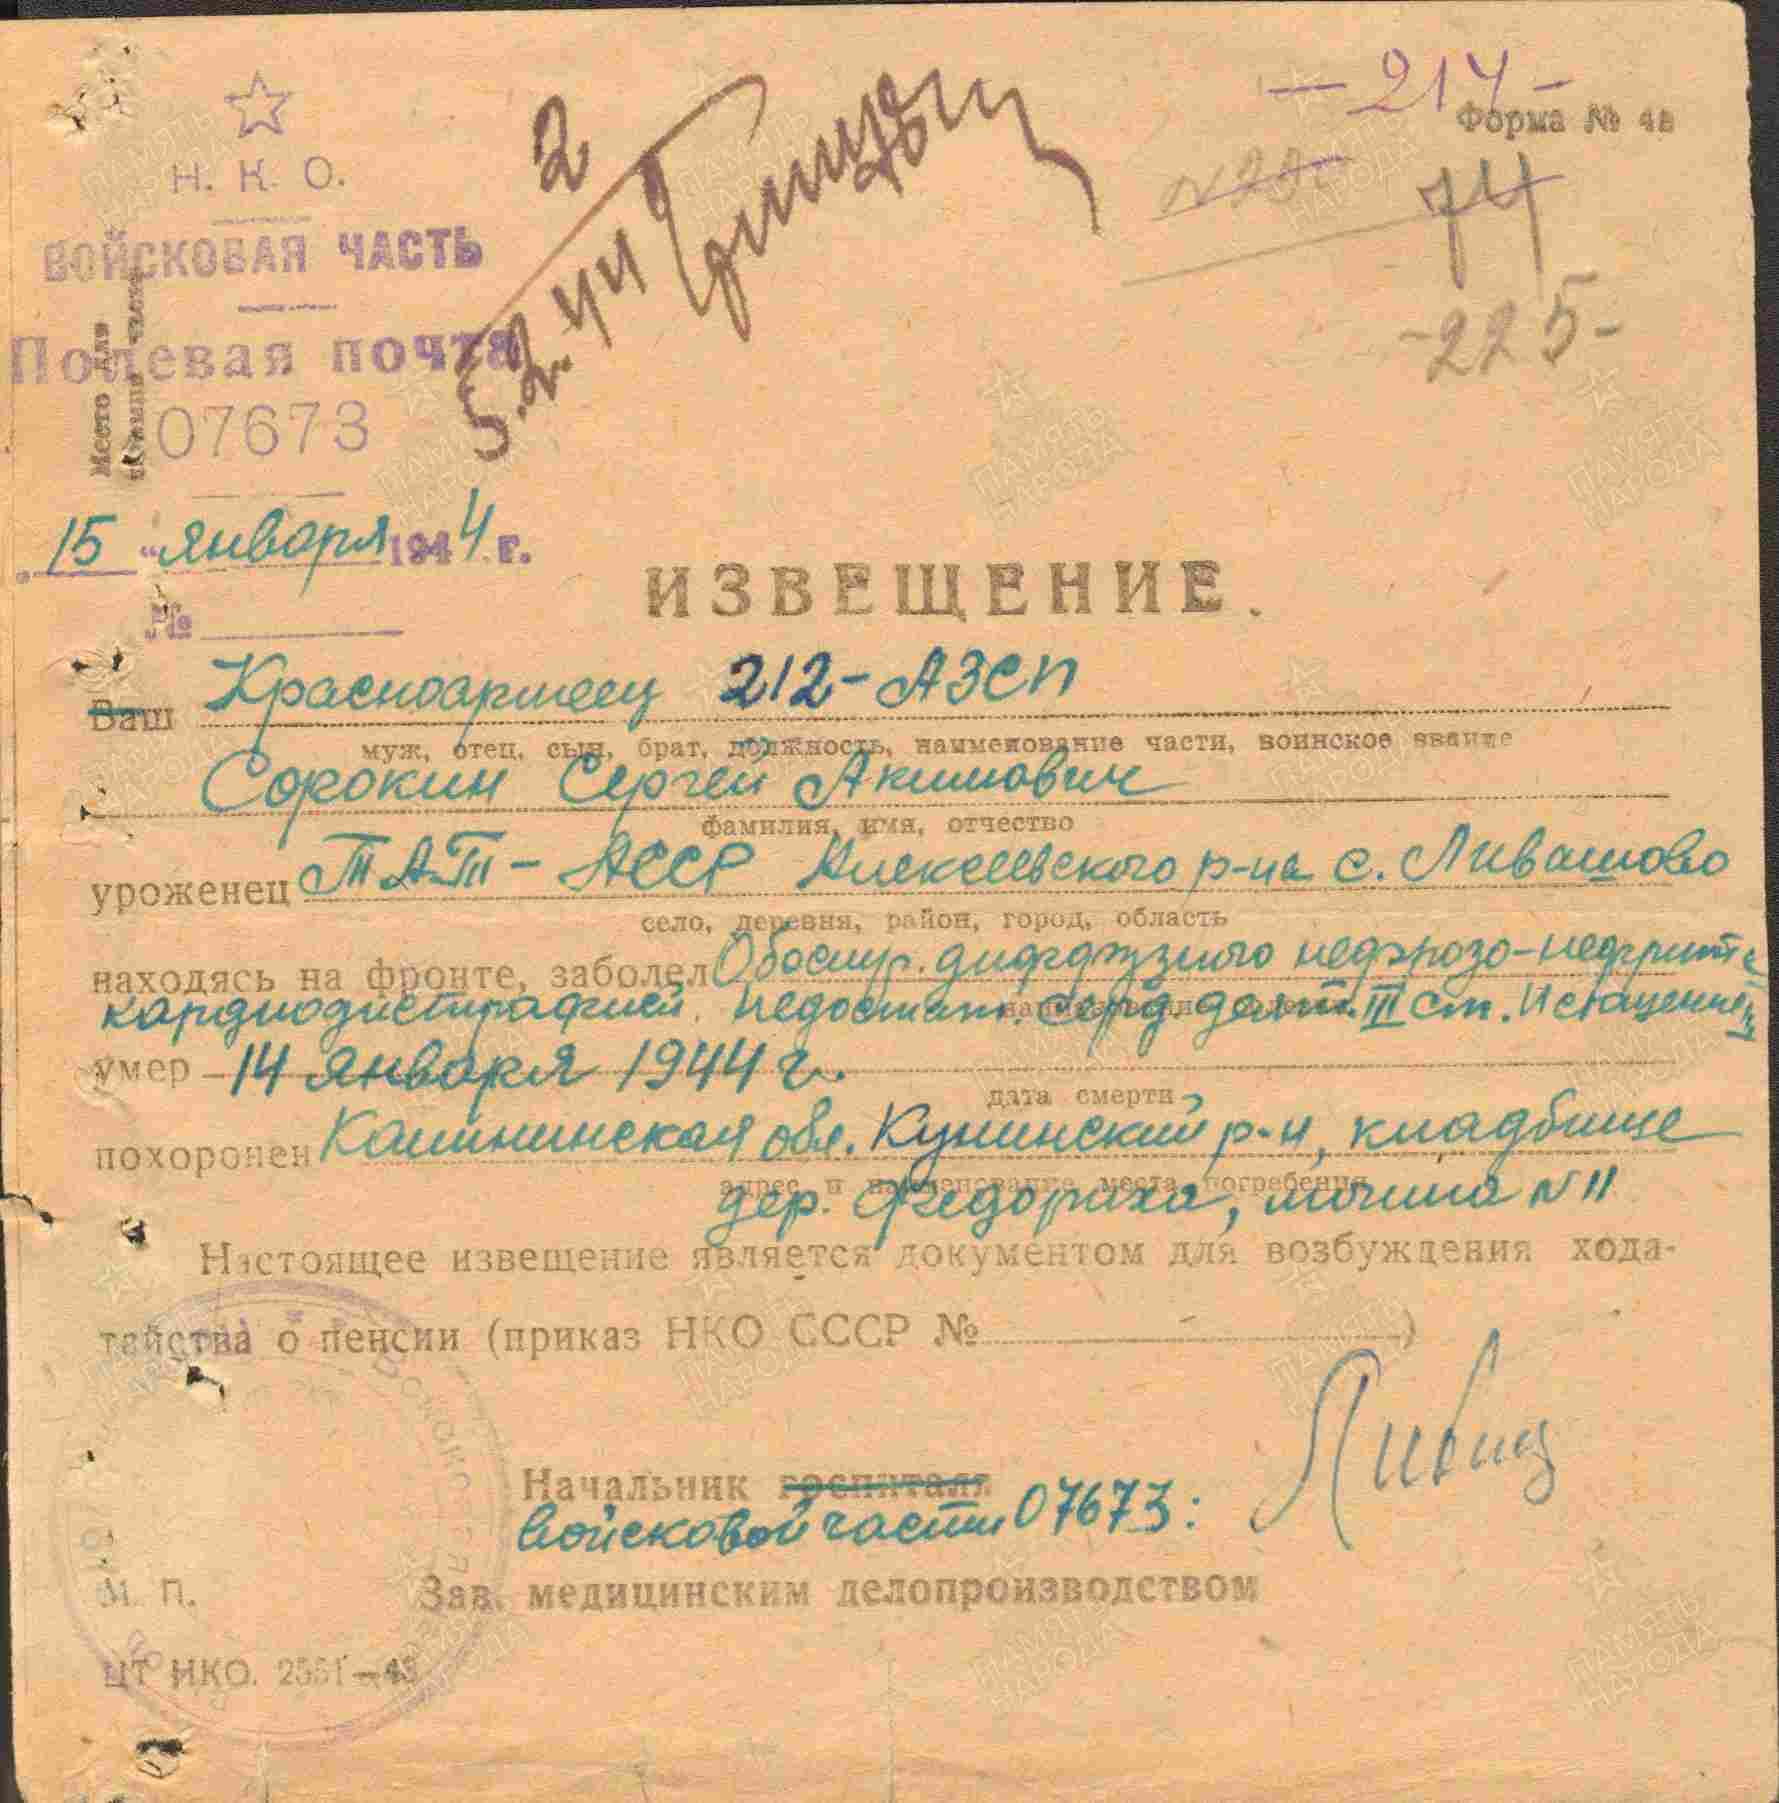 — 214 —
Форма № 4а
Н. К. О.
74
ВОЙСКОВАЯ ЧАСТЬ
-225-
Полевая почта
Место для
07673
2
5.2.44
„15" января 1944 г.
№
ИЗВЕЩЕНИЕ.
Ваш Красноармеец 212-АЗСП
муж, отец, сын, брат, должность, наименование части, воинское звание
Сорокин Сергей Акимович
фамилия, имя, отчество
уроженец ТАТ-АССР Алексеевского р-на с. Ливашово
село, деревня, район, город, область
находясь на фронте, заболел Обостр. диффузного нефрозо-нефрит с
кардиодистрофией. Недостат. серд. деят. III ст. Истощение
умер 14 января 1944 г.
дата смерти
похоронен Калининская обл. Куньинский р-н, кладбище
адрес и наименование места погребения
дер. Федориха, могила N 11
Настоящее извещение является документом для возбуждения хода-
тайства о пенсии (приказ НКО СССР № )
Начальник госпиталя
войсковой части 07673:
М. П.
Зав. медицинским делопроизводством
ЦТ НКО. 2551—43
ПАМЯТЬ НАРОДА